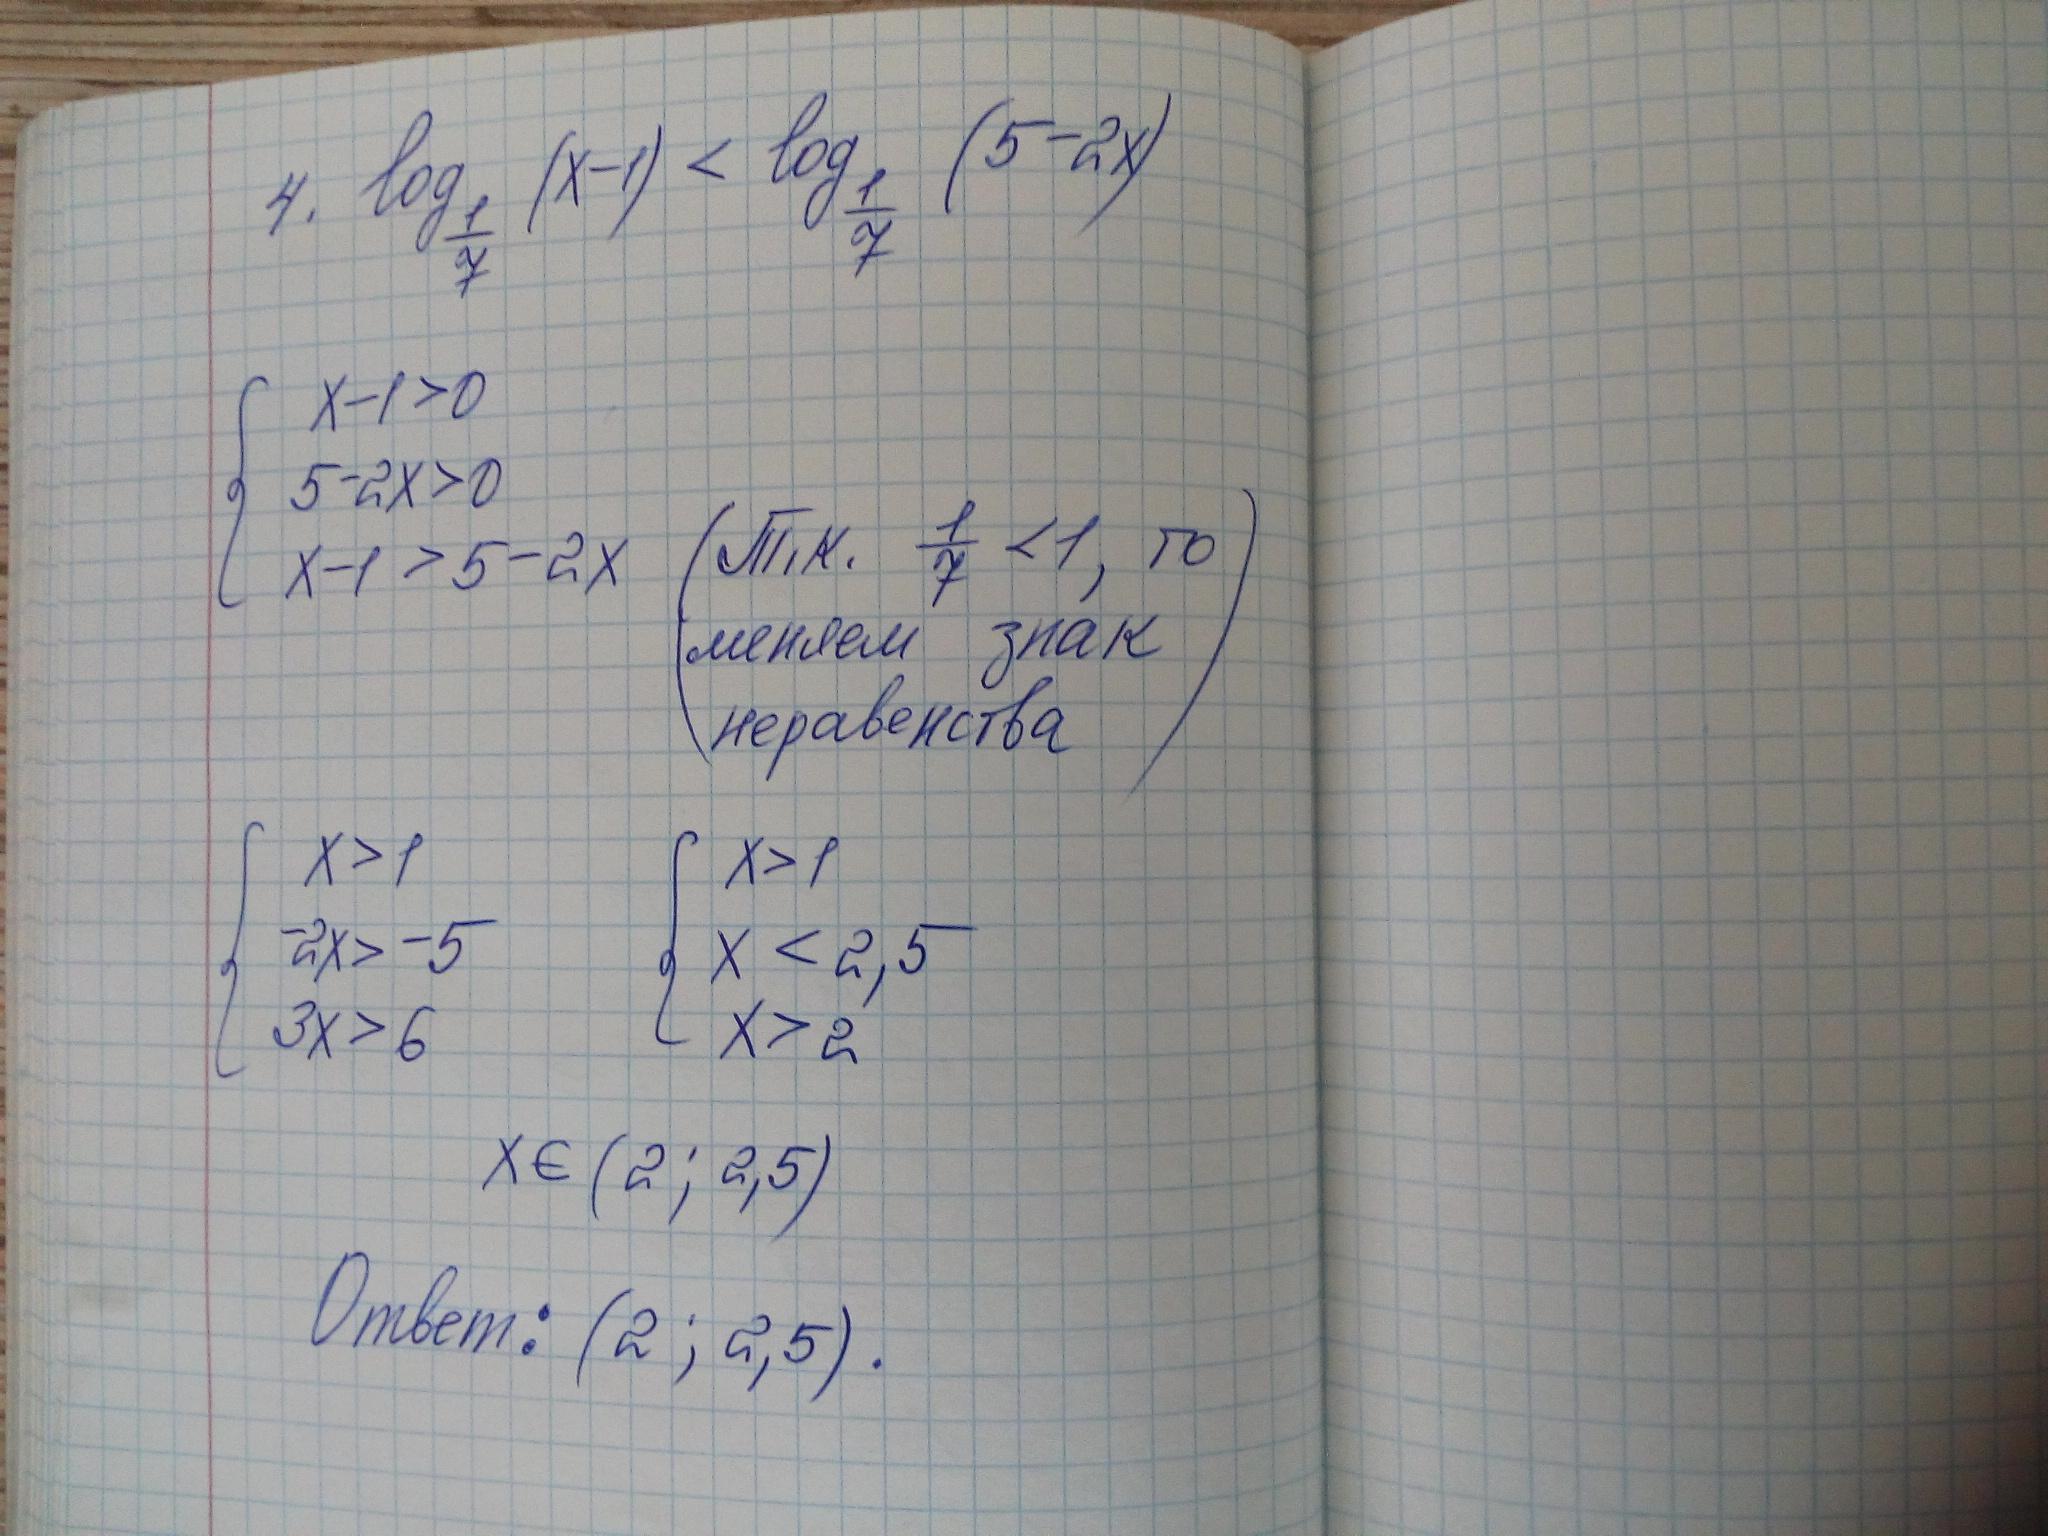 4. log_{1/7} (x-1) < log_{1/7} (5-2x)
x-1>0
5-2x>0
x-1 > 5-2x (Т.к. 1/7 <1, то
меняем знак
неравенства)
{ x>1 { x>1
-2x>-5 x < 2,5
3x>6 x>2
x∈(2; 2,5)
Ответ: (2; 2,5).